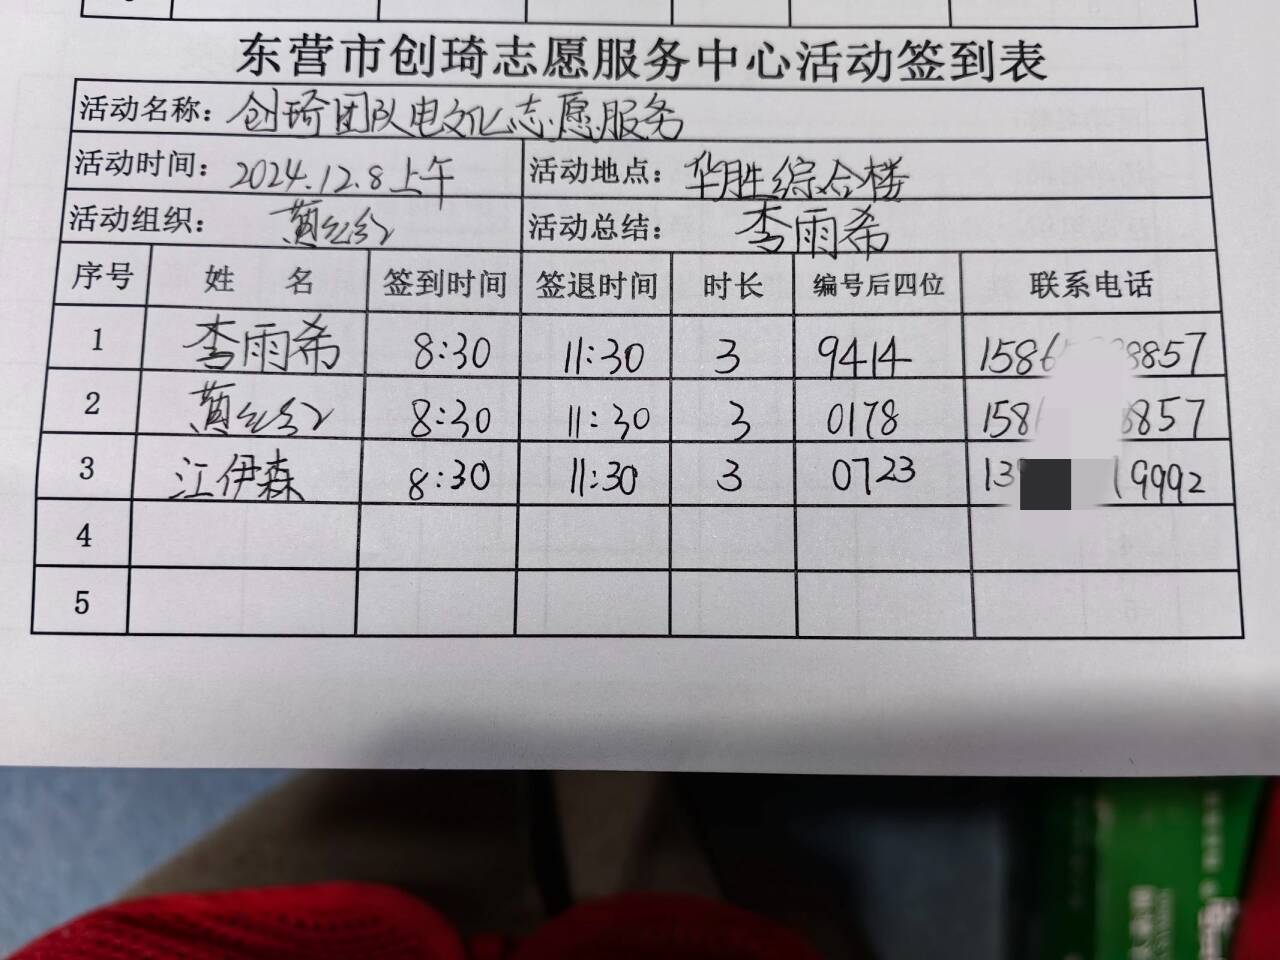 东营市创琦志愿服务中心活动签到表
活动名称：创琦团队电文化志愿服务
活动时间：2024.12.8上午 活动地点：华胜综合楼
活动组织：黄红红 活动总结：李雨希
序号 姓名 签到时间 签退时间 时长 编号后四位 联系电话
1 李雨希 8:30 11:30 3 9414 1586 8857
2 黄红红 8:30 11:30 3 0178 158 8857
3 江伊森 8:30 11:30 3 0723 13 19992
4
5